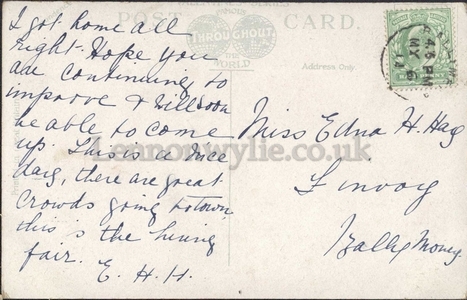 POST CARD.
THROUGHOUT
THE
WORLD
Address Only.
I got home all
right. Hope you
are continuing to
improve & will soon
be able to come
up. This is a nice
day, there are great
crowds going to town
this is the hiring
fair.
E. H. H.
4.45 PM
MY
Miss Edna H. Hay
Finvoy
Ballymoney.
Lennonwylie.co.uk